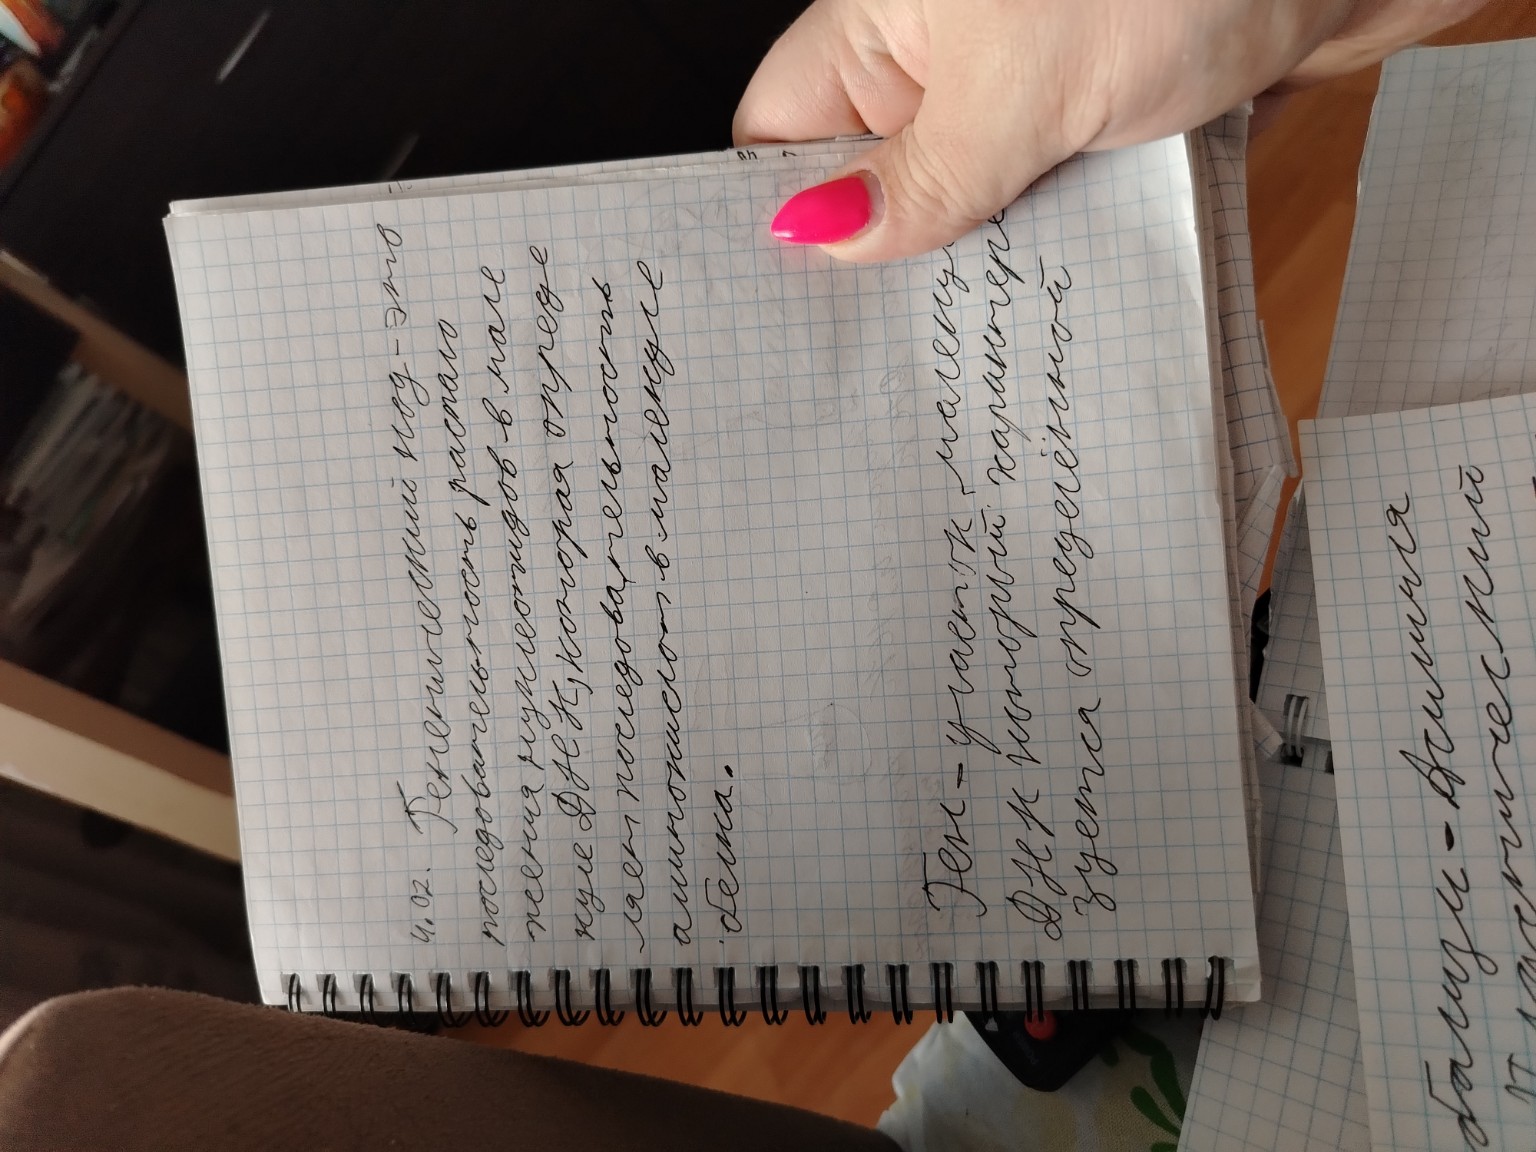 4.02. Генетический код - это
последовательность располо
жения нуклеотидов в моле
куле ДНК, которая опреде
ляет последовательность
аминокислот в молекуле
белка.
Ген - участок молеку
ДНК который характери
зуется определённой
болизм - Ассимиля
пластический